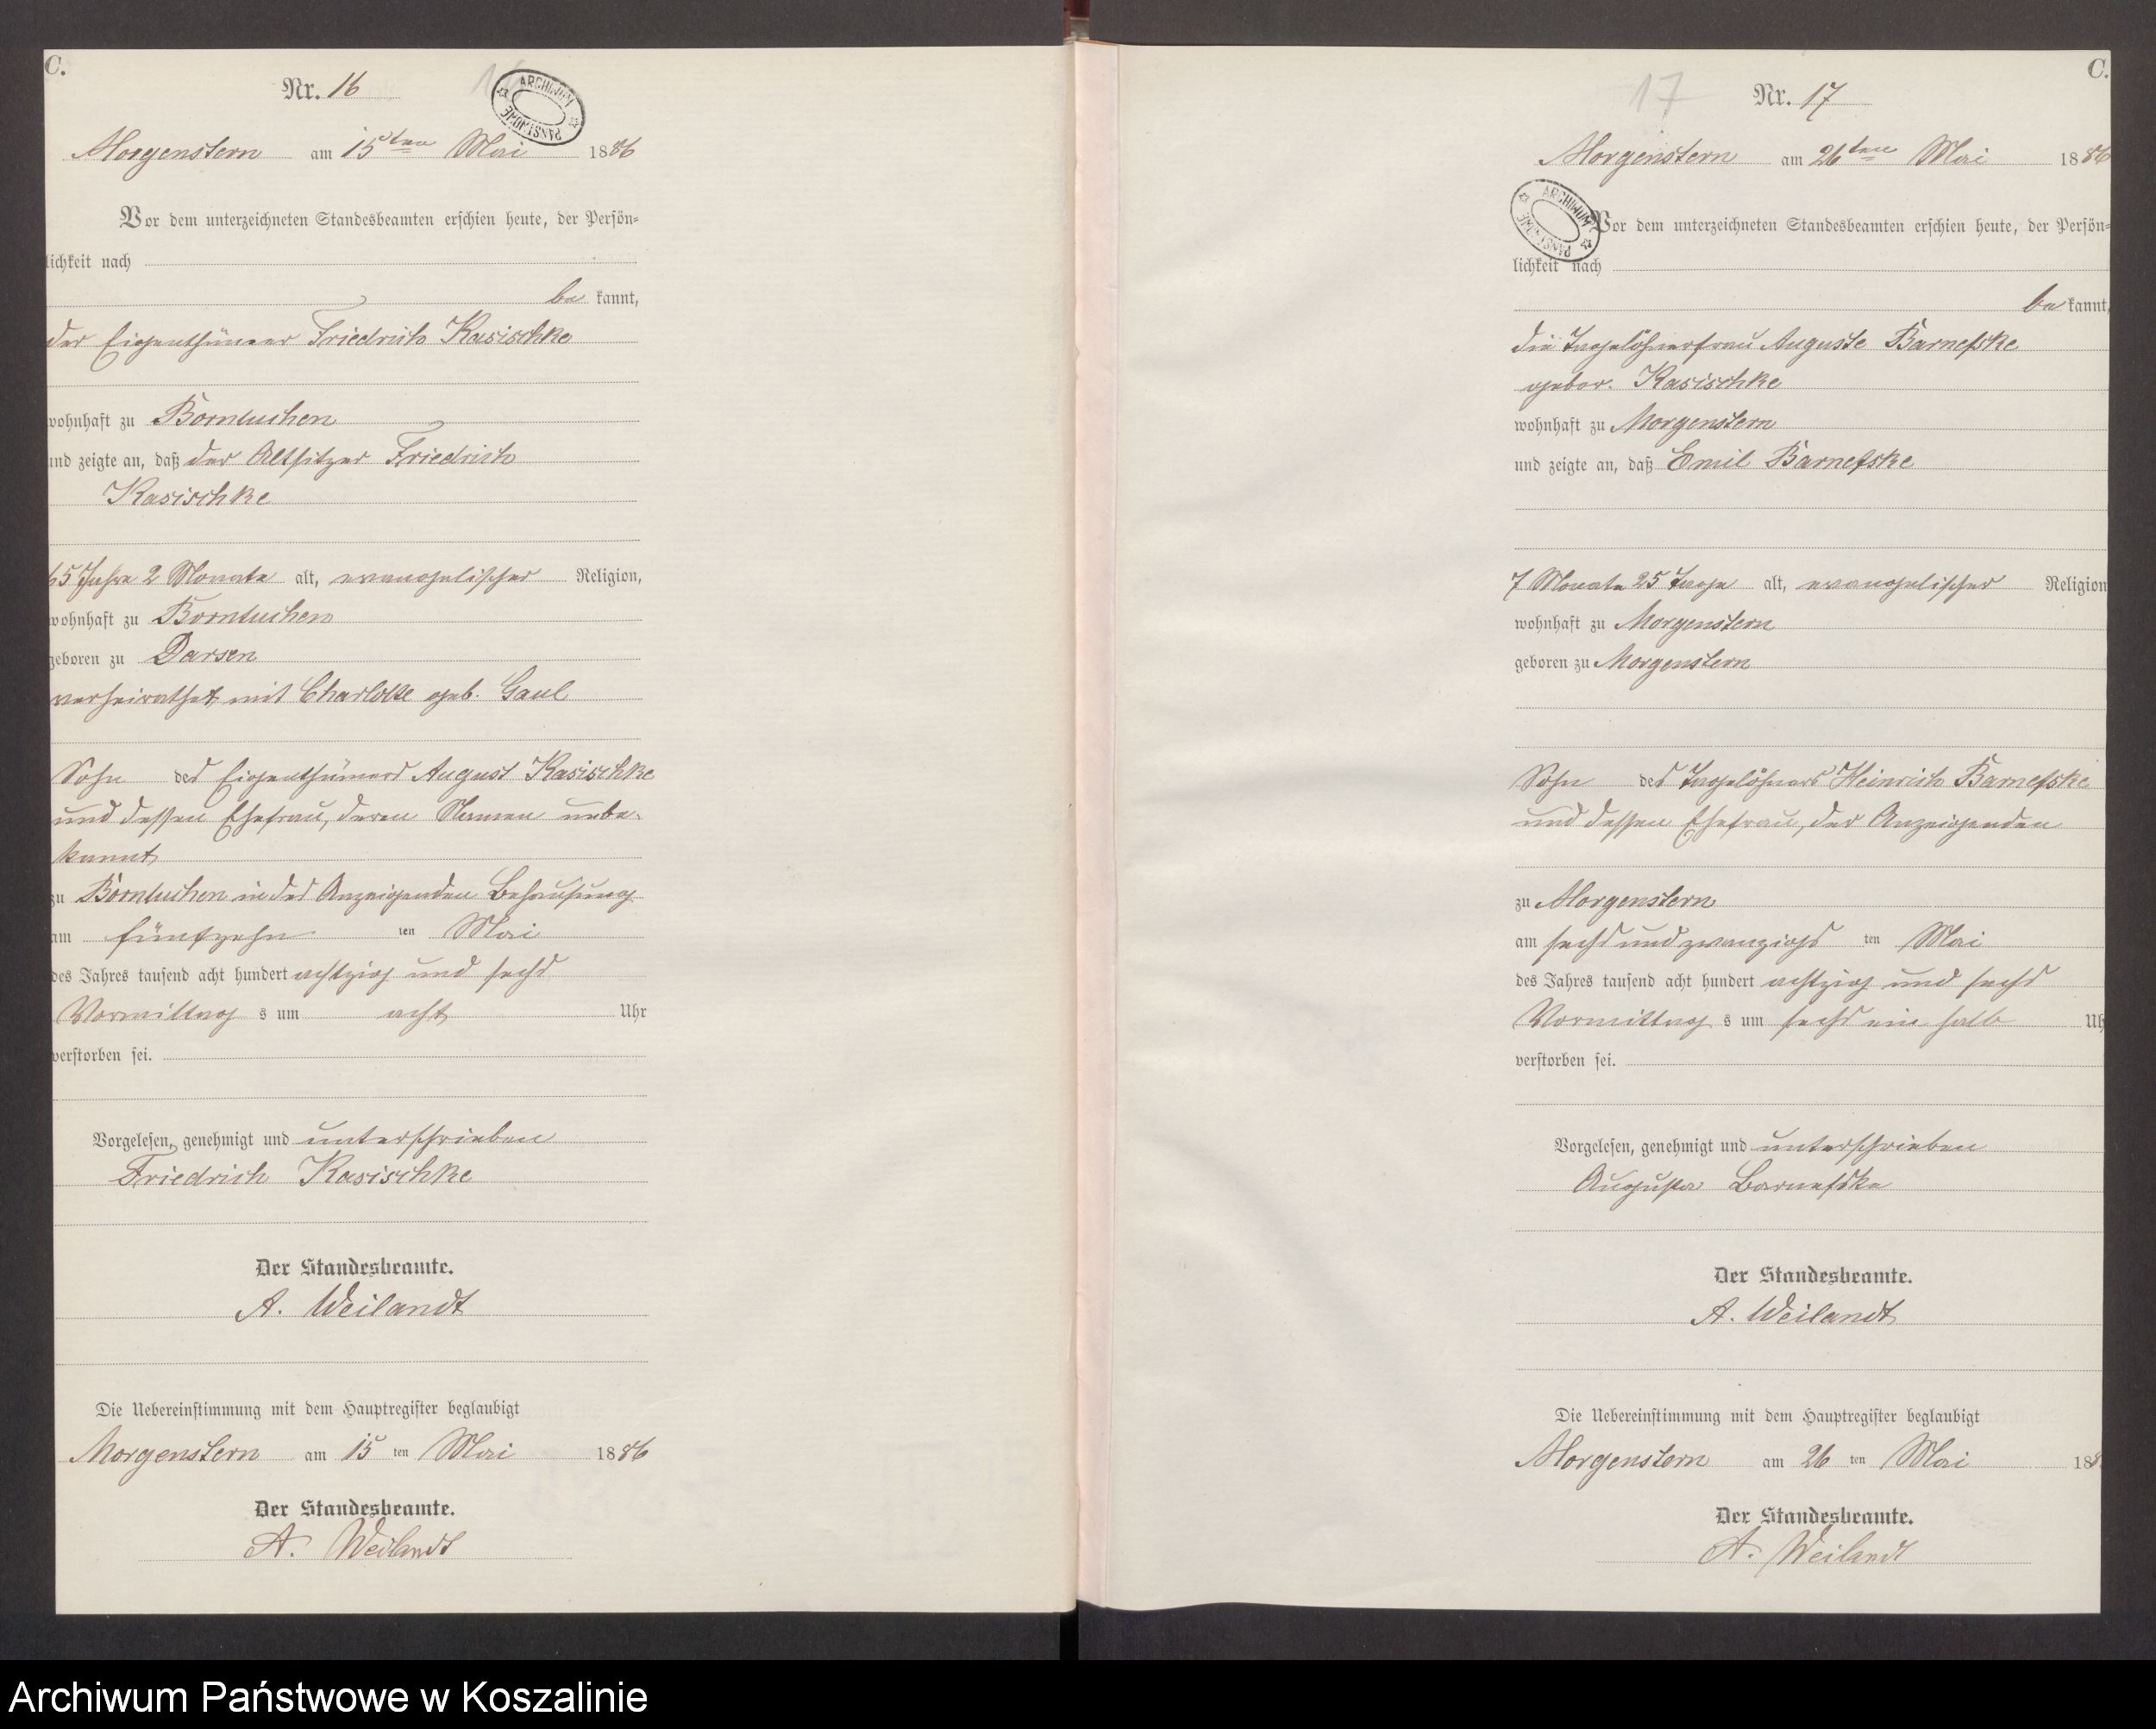 C.
Nr. 16
ARCHIWUM PAŃSTWOWE
Morgenstern am 15ten Mai 1886
Vor dem unterzeichneten Standesbeamten erschien heute, der Persön-
lichkeit nach
be kannt,
der Eigenthümer Friedrich Kasischke
wohnhaft zu Borntuchen
und zeigte an, daß der Altsitzer Friedrich
Kasischke
65 Jahre 2 Monate alt, evangelischer Religion,
wohnhaft zu Borntuchen
geboren zu Darsen
verheirathet mit Charlotte geb. Gaul
Sohn des Eigenthümers August Kasischke
und dessen Ehefrau, deren Namen unbe-
kannt
zu Borntuchen in des Anzeigenden Behausung
am fünfzehn ten Mai
des Jahres tausend acht hundert achtzig und sechs
Vormittag s um acht Uhr
verstorben sei.
Vorgelesen, genehmigt und unterschrieben
Friedrich Kasischke
Der Standesbeamte.
A. Weilandt
Die Uebereinstimmung mit dem Hauptregister beglaubigt
Morgenstern am 15 ten Mai 1886
Der Standesbeamte.
A. Weilandt
C.
17
Nr. 17
Morgenstern am 26ten Mai 1886
ARCHIWUM PAŃSTWOWE
Vor dem unterzeichneten Standesbeamten erschien heute, der Persön-
lichkeit nach
be kannt,
die Tagelöhnerfrau Auguste Barnefske
gebor. Kasischke
wohnhaft zu Morgenstern
und zeigte an, daß Emil Barnefske
7 Monate 25 Tage alt, evangelischer Religion
wohnhaft zu Morgenstern
geboren zu Morgenstern
Sohn des Tagelöhners Heinrich Barnefske
und dessen Ehefrau, der Anzeigenden
zu Morgenstern
am sechs und zwanzigs ten Mai
des Jahres tausend acht hundert achtzig und sechs
Vormittag s um sechs ein halb Uh
verstorben sei.
Vorgelesen, genehmigt und unterschrieben
Auguste Barnefske
Der Standesbeamte.
A. Weilandt
Die Uebereinstimmung mit dem Hauptregister beglaubigt
Morgenstern am 26 ten Mai 188
Der Standesbeamte.
A. Weilandt
Archiwum Państwowe w Koszalinie